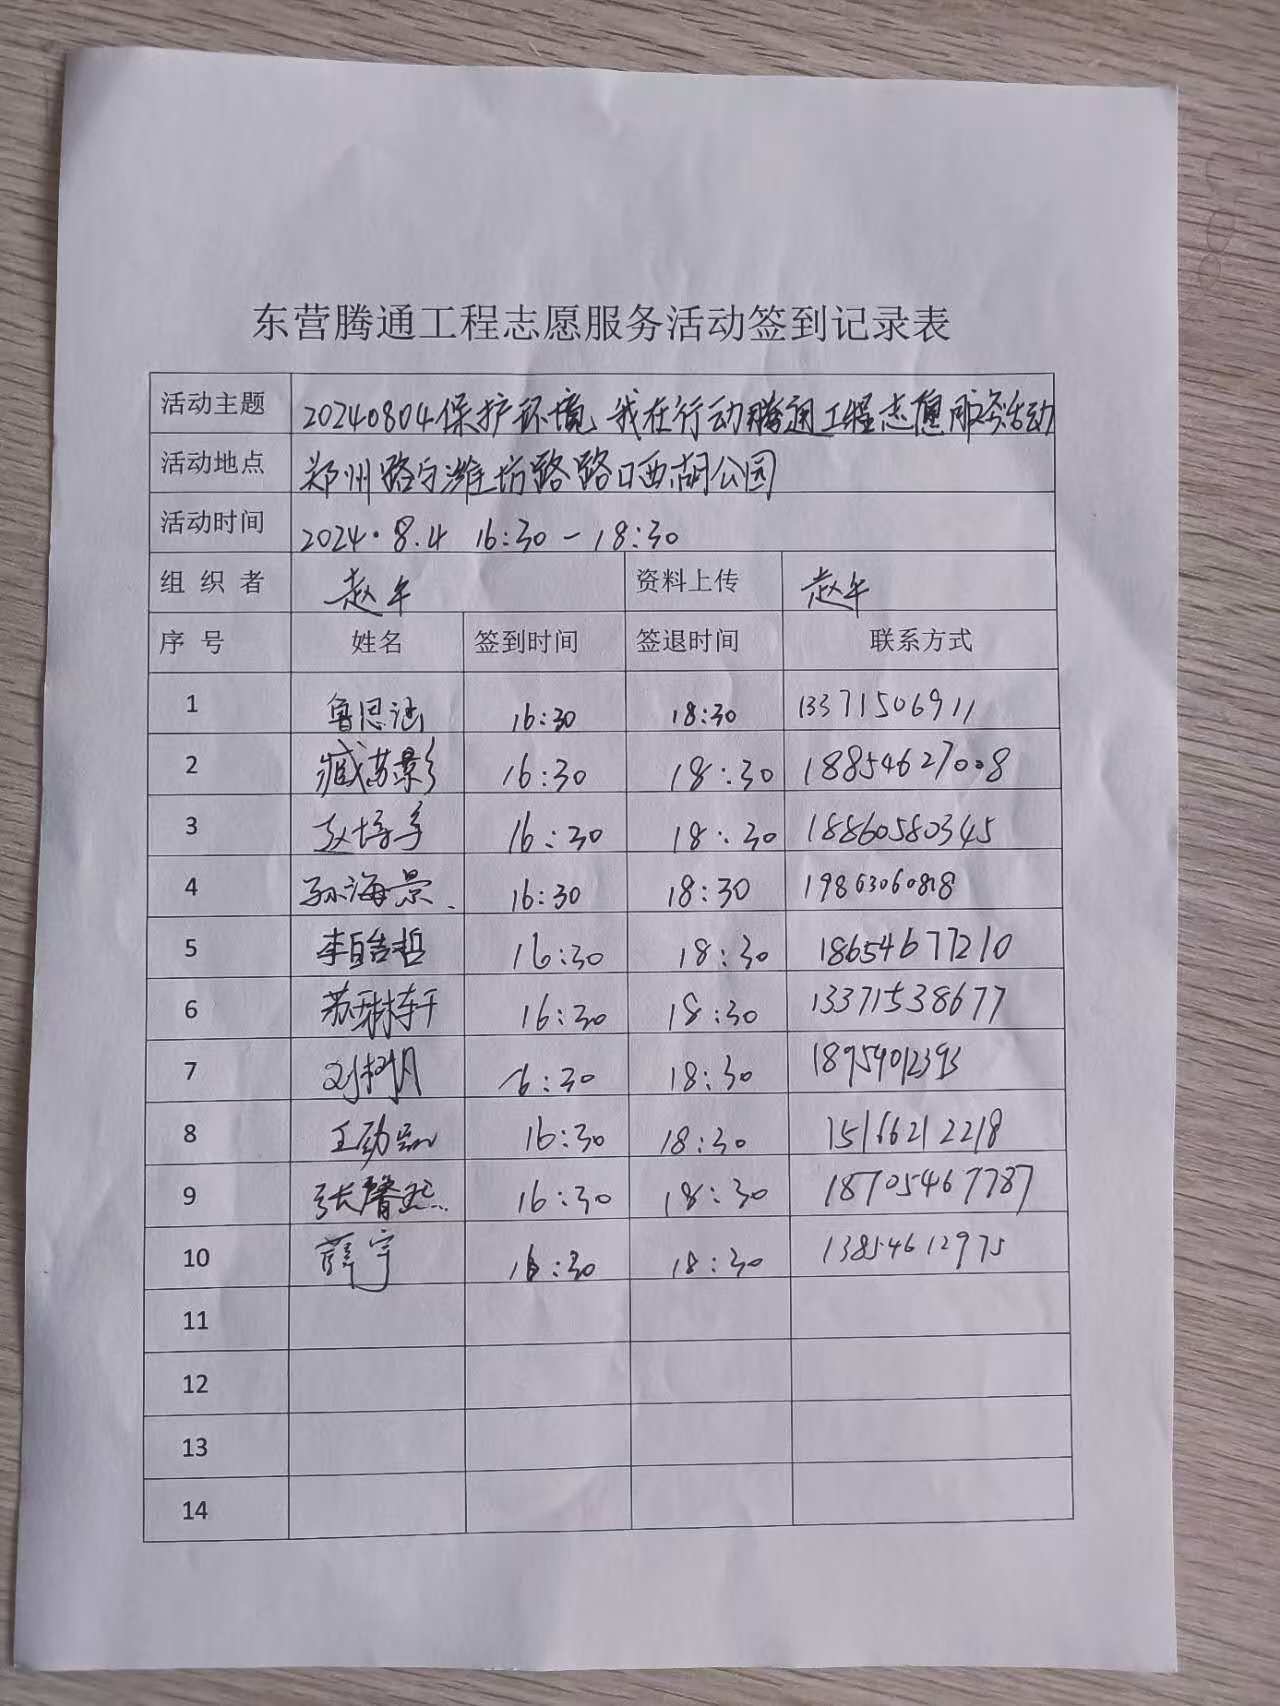 东营腾通工程志愿服务活动签到记录表
活动主题 20240804保护环境,我在行动腾通工程志愿服务活动
活动地点 郑州路与潍坊路路口西湖公园
活动时间 2024.8.4 16:30-18:30
组织者 赵午 资料上传 赵午
序号 姓名 签到时间 签退时间 联系方式
1 鲁思涵 16:30 18:30 13371506911
2 臧 影 16:30 18:30 18854627008
3 赵 16:30 18:30 18860580345
4 孙海景 16:30 18:30 19863060818
5 李皓哲 16:30 18:30 18654677210
6 苏琳轩 16:30 18:30 13371538677
7 16:30 18:30 18954012393
8 王劲 16:30 18:30 15166212218
9 张馨 16:30 18:30 18705467787
10 薛宇 16:30 18:30 13854612975
11
12
13
14